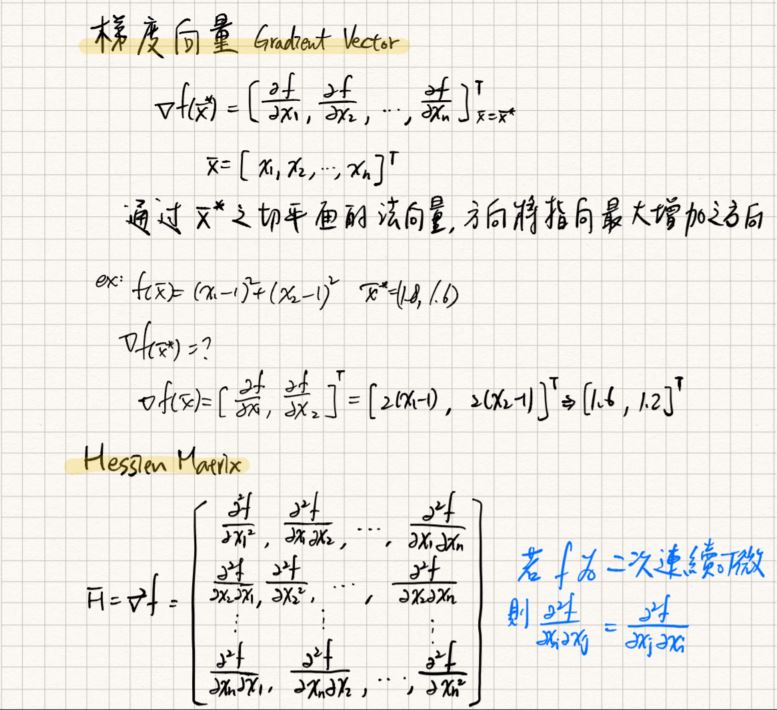 梯度向量 Gradient Vector
∇f(x̄*) = [∂f/∂x₁, ∂f/∂x₂, ..., ∂f/∂xₙ]ᵀ x̄=x̄*
x̄ = [x₁, x₂, ..., xₙ]ᵀ
通过 x̄* 之切平面的法向量, 方向将指向最大增加之方向
ex: f(x̄) = (x₁-1)² + (x₂-1)² x̄* = (1.8, 1.6)
∇f(x̄*) = ?
∇f(x̄) = [∂f/∂x₁, ∂f/∂x₂]ᵀ = [2(x₁-1), 2(x₂-1)]ᵀ ⇒ [1.6, 1.2]ᵀ
Hessien Matrix
H̄ = ∇²f = [∂²f/∂x₁², ∂²f/∂x₁∂x₂, ..., ∂²f/∂x₁∂xₙ
∂²f/∂x₂∂x₁, ∂²f/∂x₂², ..., ∂²f/∂x₂∂xₙ
⋮ ⋮ ⋮
∂²f/∂xₙ∂x₁, ∂²f/∂xₙ∂x₂, ..., ∂²f/∂xₙ²]
若 f 为二次連續可微
則 ∂²f/∂xᵢ∂xⱼ = ∂²f/∂xⱼ∂xᵢ